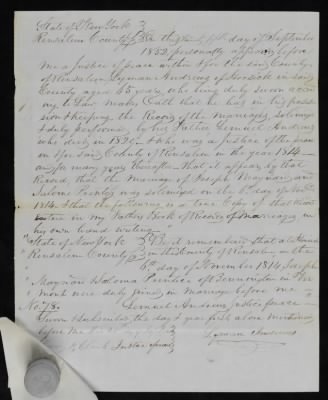 State of New York
Rensselaer County } On this day of September
1852, personally appeared before
me a Justice of peace within & for the said County
of Rensselaer Lyman Andrews of Hoosick in said
County aged 65 years, who being duly sworn accor
ing to Law makes Oath that he has in his posses
sion & keeping the Record of the marriages, solemnize
& duly performed, by his Father Lemuel Andrews
who died in & who was a Justice of the peace
in & for said County of Rensselaer in the year 1814
and for many years thereafter that it appears by that
Record that the marriage of Joseph Maynard and
Salome Prentice was solemnized on the 6th day of Novem
1814 & that the following is a true Copy of that Record
in my Fathers Book of Record of marriages in
his own hand writing
"State of New York
Rensselaer County } Be it remembered that at
in the County of Rensselaer on the
6th day of November 1814 Joseph
Maynard & Saloma Prentice of Bennington in Ver
mont were duly joined in marriage before me
No. 78. Lemuel Andrews Justice peace
Sworn & subscribed the day & year first above mentioned
before me
Lyman Andrews
Justice peace